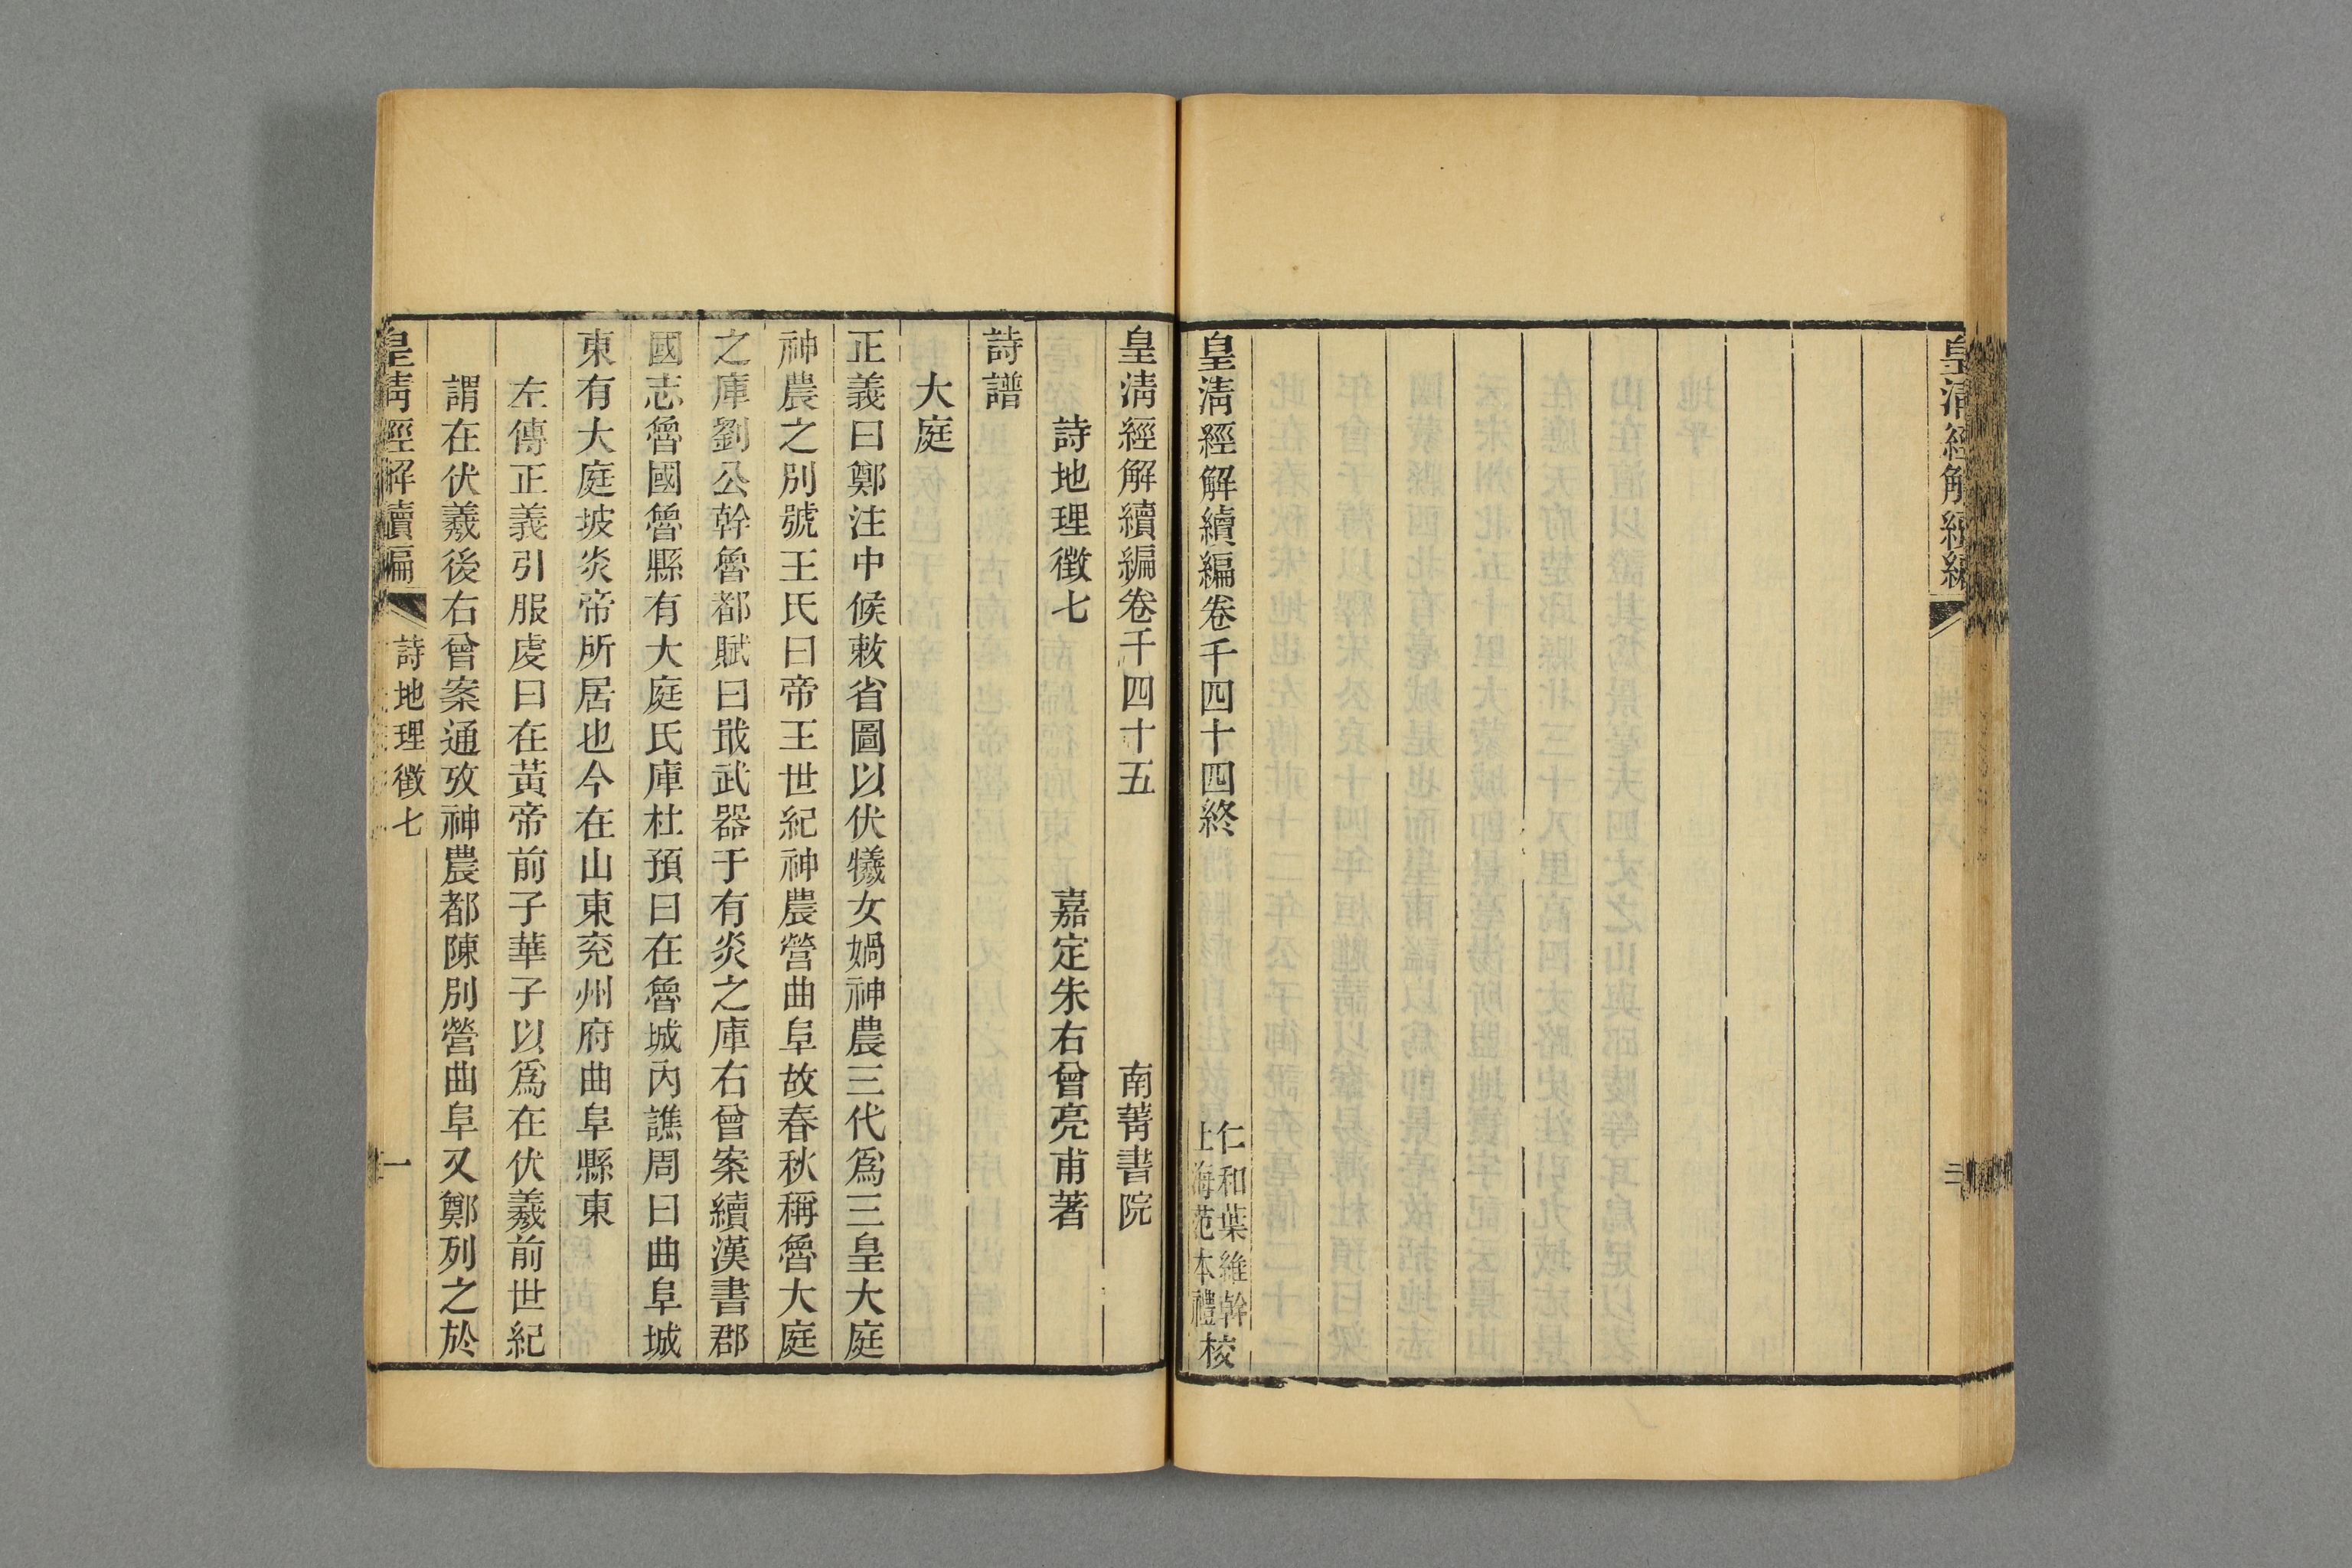 皇清經解續編
皇清經解續編卷千四十四終
仁和葉維幹
上海范本禮
校
皇清經解續編卷千四十五
南菁書院
詩地理徵七
嘉定朱右曾亮甫著
詩譜
大庭
正義曰鄭注中候敕省圖以伏犧女媧神農三代爲三皇大庭
神農之別號王氏曰帝王世紀神農營曲阜故春秋稱魯大庭
之庫劉公幹魯都賦曰戢武器于有炎之庫右曾案續漢書郡
國志魯國魯縣有大庭氏庫杜預曰在魯城內譙周曰曲阜城
東有大庭坡炎帝所居也今在山東兖州府曲阜縣東
左傳正義引服虔曰在黃帝前子華子以爲在伏羲前世紀
謂在伏羲後右曾案通攷神農都陳別營曲阜又鄭列之於
皇清經解續編
詩地理徵七
一